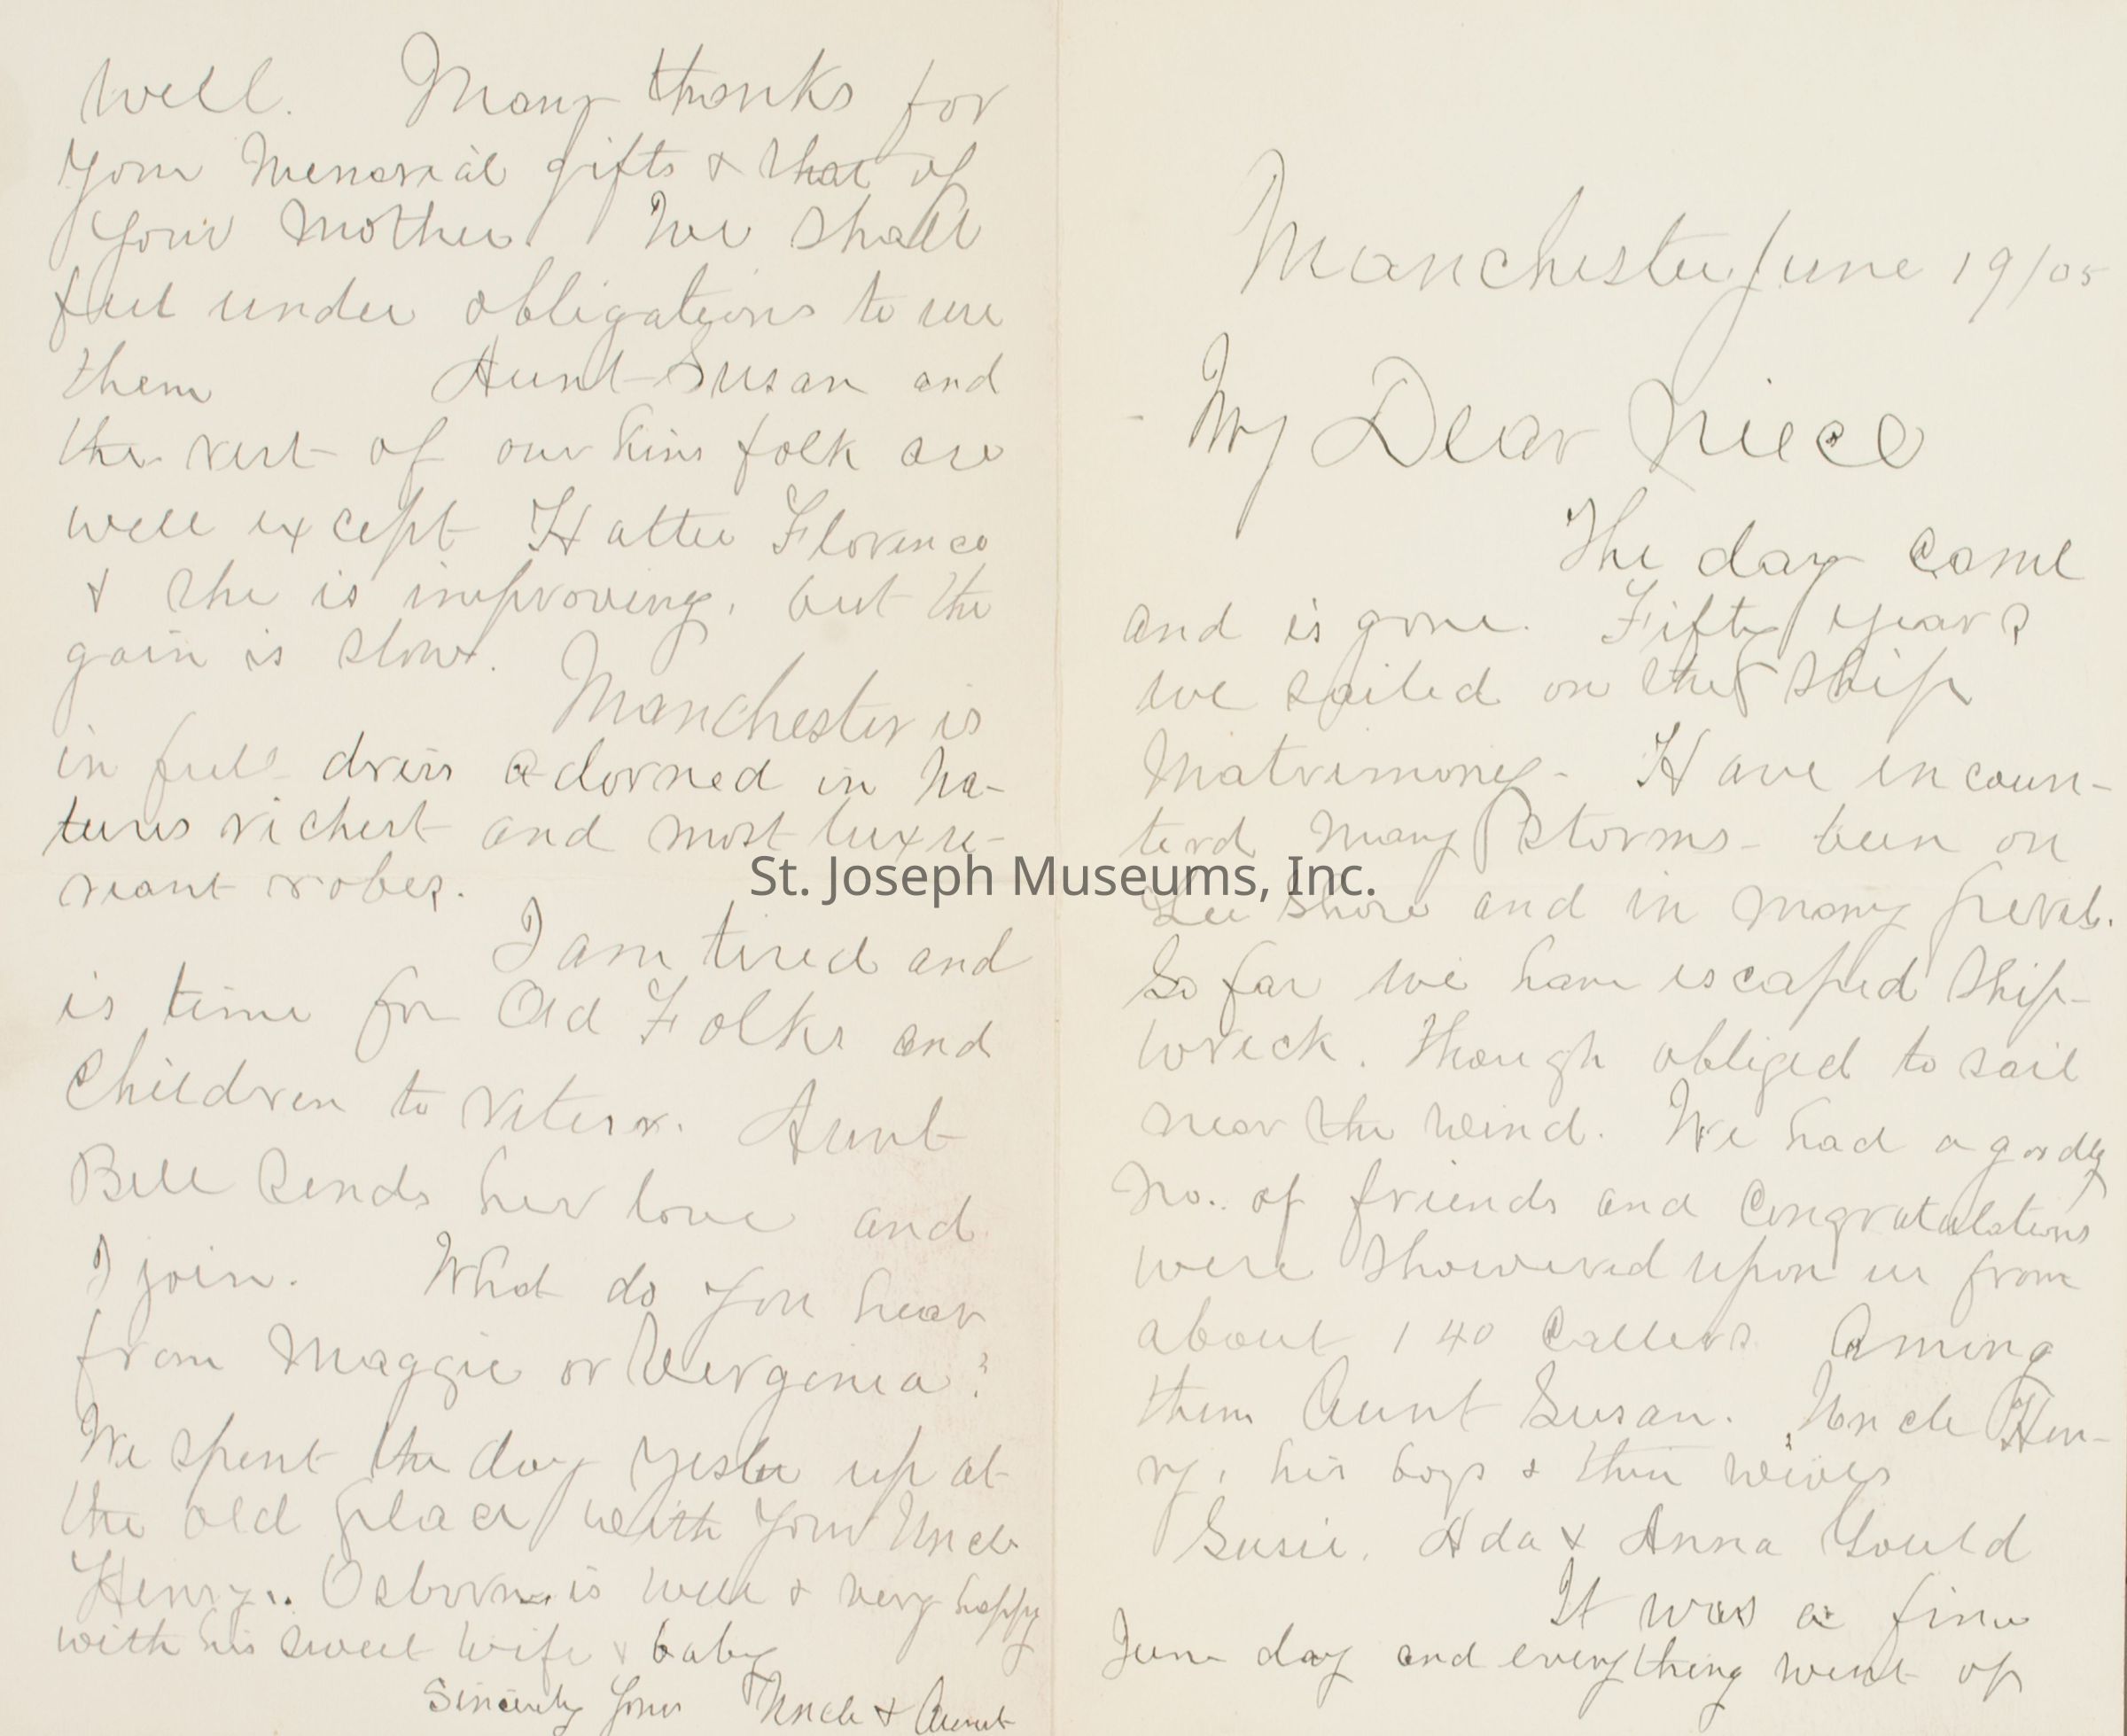 Manchester June 19/05
My Dear Niece
The day came
and is gone. Fifty years
we sailed on the Ship
Matrimony - Have incoun-
terd many storms - been on
Lee Shore and in many perals.
So far we have escaped Ship-
wreck. Though obliged to sail
near the wind. We had a goodly
No. of friends and Congratulations
were showered upon us from
about 140 Callers Among
them Aunt Susan. Uncle Hen-
ry, his boys & their wives
Susie, Ada & Anna Gould
It was a fine
June day and everything went of
well. Many thanks for
your Memorial gifts & that of
your Mother. We shall
feel under obligations to use
them Aunt Susan and
the rest of our kins folk are
well except Hattie Florence
& she is improving, but the
gain is slow.
Manchester is
in full dress adorned in na-
tures richest and most luxu-
reant robes.
I am tired and
is time for Old Folks and
Children to retire. Aunt
Bell sends her love and
I join. What do you hear
from Maggie or Verginia?
We spent the day yester up at
the old place with your Uncle
Henry.. Osborn is well & very happy
with his sweet wife & baby
Sincerely yours Uncle & Aunt
St. Joseph Museums, Inc.